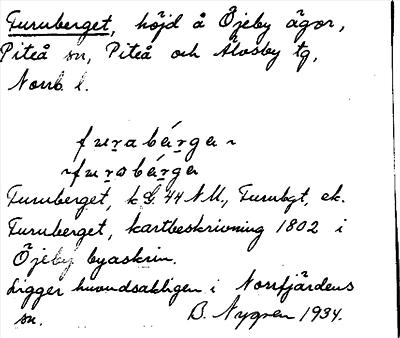 Furuberget, höjd å Öjeby ägor,
Piteå sn, Piteå och Älvsby tg,
Norrb. l.
furabærga ~
~ furobærga
Furuberget, k 44 NM, Furubgt, ek.
Furuberget, kartbeskrivning 1802 i
Öjeby byaskrin.
Ligger huvudsakligen i Norrfjärdens
sn. B. Nygren 1934.